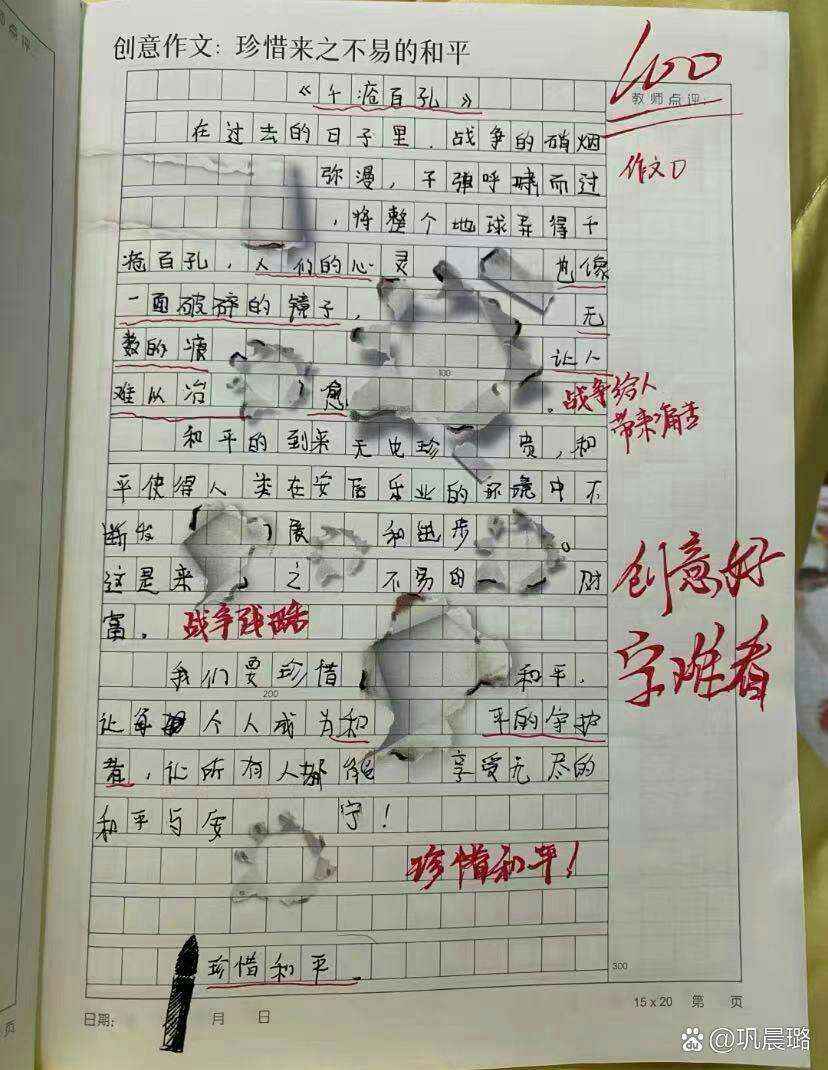 创意作文：珍惜来之不易的和平
100
教师点评：
《千疮百孔》
在过去的日子里，战争的硝烟
作文》
弥漫，子弹呼啸而过
，将整个地球弄得千
疮百孔，人们的心灵也像
一面破碎的镜子，无
数的痕让人
100
难从治愈。
战争给人
带来痛苦
和平的到来无比珍贵，和
平使得人类在安居乐业的环境中不
断发展和进步。
这是来之不易的财
富。
战争残酷
创意好
字难看
我们要珍惜和平，
200
让每个人成为和平的守护
者，让所有人都能享受无尽的
和平与安宁！
珍惜和平！
珍惜和平
300
15x20 第 页
日期： 月 日
页
Bai du @巩晨璐